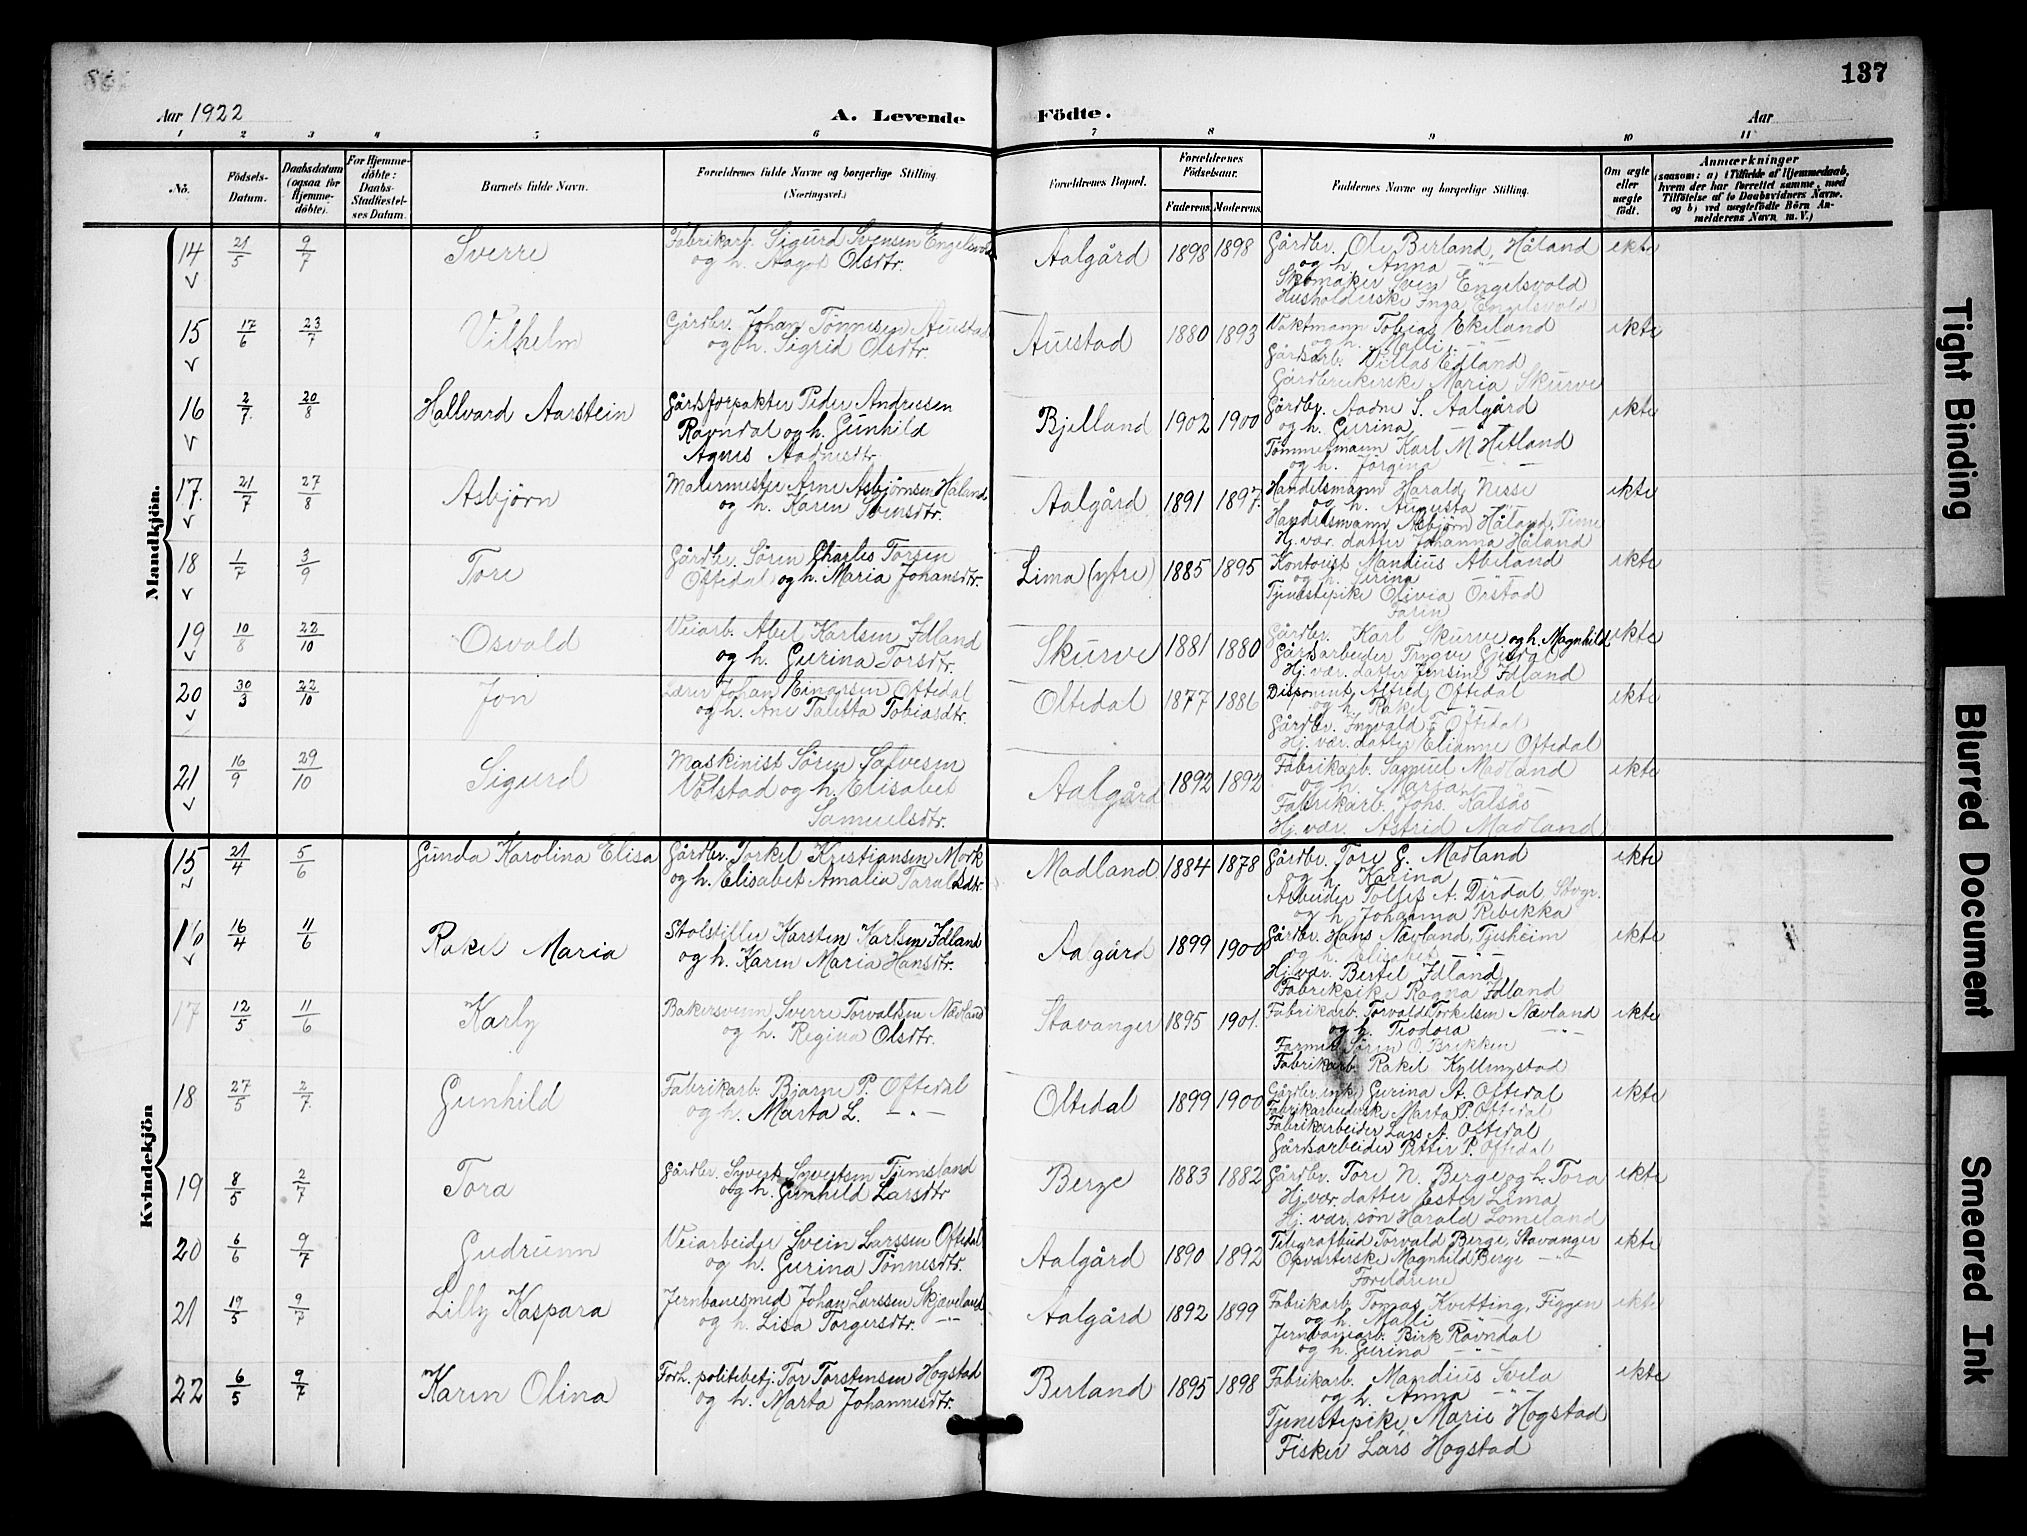 137
Aar 1922
A. Levende
Födte.
Aar
1 2 3 4 5 6 7 8 9 10 11
No.
Födsels-
Datum.
Daabsdatum
(ogsaa for
Hjemme-
döbte).
For Hjemme-
döbte:
Daabs-
Stadfæstel-
ses Datum.
Barnets fulde Navn.
Forældrenes fulde Navne og borgerlige Stilling
(Næringsvei.)
Forældrenes Bopæl.
Forældrenes
Födselsaar.
Faderens. Moderens.
Faddernes Navne og borgerlige Stilling.
Om ægte
eller
uægte
födt.
Anmærkninger
(saasom: a) i Tilfælde af Hjemmedaab,
hvem der har forrettet samme, med
Tilföielse af to Daabsvidners Navne.
og b) ved uægtefödte Börn An-
melderens Navn m. V.)
Mandkjön.
14 21/5 9/7 Sverre
Fabrikarb. Sigurd Svensen Engelsvold
og h. Aagot Olsdtr.
Aalgård 1898 1898
Gårdbr. Ole Berland, Håland
og h. Anna -"-
Skomaker Sven Engelsvold
Husholderske Inga Engelsvold
ekte
15 17/6 23/7 Vilhelm
Gårdbr. Johan Tönnesen Auestad
og h. Sigrid Olsdtr.
Auestad 1880 1893
Vaktmann Tobias Ekeland
og h. Malli -"-
Gårdsarb. Villas Edland
Gårdbrukerske Maria Skurve
ekte
16 2/7 20/8 Hallvard Aarstein
Gårdsforpakter Peder Andreasen
Ravndal og h. Gunhild
Agnes Aadnesdtr.
Bjelland 1902 1900
Gårdbr. Aadne S. Aalgård
og h. Gurina
Tömmermann Karl M. Hetland
og h. Jörgina
ekte
17. 21/7 27/8 Asbjörn
Malermester Arne Asbjörnsen Håland
og h. Karen Svensdtr.
Aalgård 1891 1897.
Handelsmann Harald Nesse
og h. Augusta -"-
Handelsmann Asbjörn Håland, Time
Hj. vær. datter Johanna Håland
ekte
18 1/7 3/9 Tore
Gårdbr. Sören Charles Torsen
Oftedal og h. Maria Johansdtr.
Lima (ytre) 1885 1895
Kontorist Mandius Abeland
og h. Gurina -"-
Tjenestepike Olivia Örstad
Faren
ekte
19 10/8 22/10 Osvald
Veiarb. Abel Karlsen Idland
og h. Gurina Torsdtr.
Skurve 1881 1880
Gårdbr. Karl Skurve og h. Magnhild
Gårdsarbeider Trygve Gjesdal
Hj. vær. datter Jensine Idland
ekte
20 30/3 22/10 Jon
Lærer Johan Einarsen Oftedal
og h. Ane Taletta Tobiasdtr.
Oltedal 1877 1886
Disponent Alfred Oftedal
og h. Rakel -"-
Gårdbr. Ingvald T. Oftedal
Hj. vær. datter Elianne Oftedal
ekte
21 16/9 29/10 Sigurd
Maskinist Sören Salvesen
Volstad og h. Elisabet
Samuelsdtr.
Aalgård 1892 1892
Fabrikarb. Samuel Madland
og h. Marta -"-
Fabrikarb. Johs. Kalsås
Hj. vær. Astrid Madland
ekte
Kvindekjön
15 21/4 5/6 Gunda Karolina Elisa
Gårdbr. Torkel Kristiansen Mork
og h. Elisabet Amalia Taraldsdtr.
Madland 1884 1878
Gårdbr. Tore G. Madland
og h. Karina -"-
Arbeider Tollef A. Dirdal Stvgr.
og h. Johanna Rebekka
ekte
16 16/4 11/6 Rakel Maria
Stolstiller Karsten Karlsen Idland
og h. Karen Maria Hansdtr.
Aalgård 1899 1900
Gårdbr. Hans Nævland, Tjesheim
og h. Elisabet -"-
Hj. vær. Bertel Idland
Fabrikpike Ragna Idland
ekte
17 12/5 11/6 Karly
Bakersvenn Sverre Torvaldsen Nævland
og h. Regina Olsdtr.
Stavanger 1895 1901.
Fabrikarb. Torvald Torkelsen Nævland
og h. Teodora -"-
Farmer Sören O. Brekken
Fabrikarb. Rakel Kyllingstad
ekte
18 27/5 2/7 Gunhild
Fabrikarb. Bjarne P. Oftedal
og h. Marta L. -"-
Oltedal 1899 1900
Gårdbr. enke Gurina A. Oftedal
Fabrikarbeiderske Marta P. Oftedal
Fabrikarbeider Lars A. Oftedal
Gårdsarbeider Petter P. Oftedal
ekte
19 8/5 2/7 Tora
Gårdbr. Syvert Syvertsen Tjemsland
og h. Gunhild Larsdtr
Berge 1883 1882
Gårdbr. Tore N. Berge og h. Tora
Hj. vær. datter Ester Lima
Hj. vær. sön Harald Lomeland
ekte
20 6/6 9/7 Gudrunn
Veiarbeider Svein Larssen Oftedal
og h. Gurina Tönnesdtr.
Aalgård 1890 1892
Telegrafbud Torvald Berge, Stavanger
Opvarterske Magnhild Berge -"-
Foreldrene
ekte
21 19/5 9/7 Lilly Kaspara
Jernbanesmed Johan Larssen Skjæveland
og h. Lisa Torgersdtr. -"-
Aalgård 1892 1899
Fabrikarb. Tomas Kvitting, Figgen
og h. Malli -"-
Jernbanearb. Birk Ravndal
og h. Gurina -"-
ekte
22 6/5 9/7 Karen Olina
Forh. politibetj. Tor Torstensen Hogstad
og h. Marta Johannesdtr.
Berland 1895 1898
Fabrikarb. Mandius Svela
og h. Anna -"-
Tjenestepike Marie Hogstad
Fisker Lars Hogstad
ekte
Tight Binding
Blurred Document
Smeared Ink